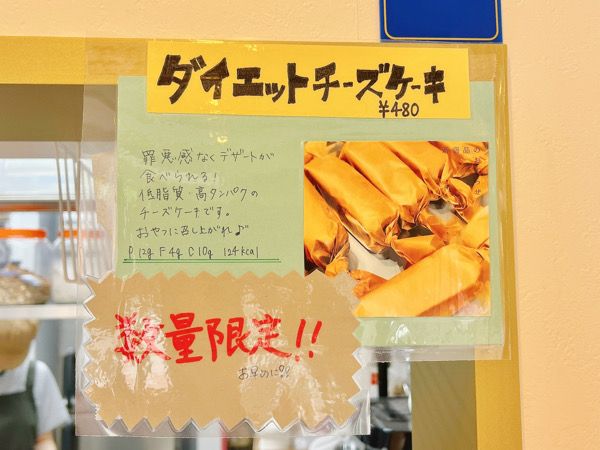 ダイエットチーズケーキ
¥480
罪悪感なくデザートが
食べられる!
低脂質・高タンパクの
チーズケーキです。
おやつに召し上がれ♪
P 12g F 4g C 10g 124kcal
数量限定!!
お早めに!!